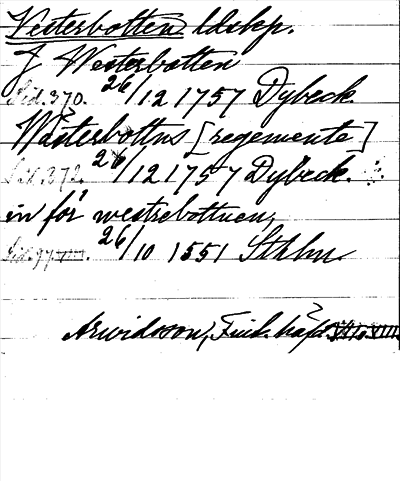 Vesterbotten ldskp.
J Westerbotten
Sid. 370. 26/12 1757 Dybeck.
Wästerbottns [regemente]
Sid. 372. 26/12 1757 Dybeck.
in för westrebottnen,
Sid. 97 26/10 1551 Sthlm
Arwidsson, Finl. häfd.